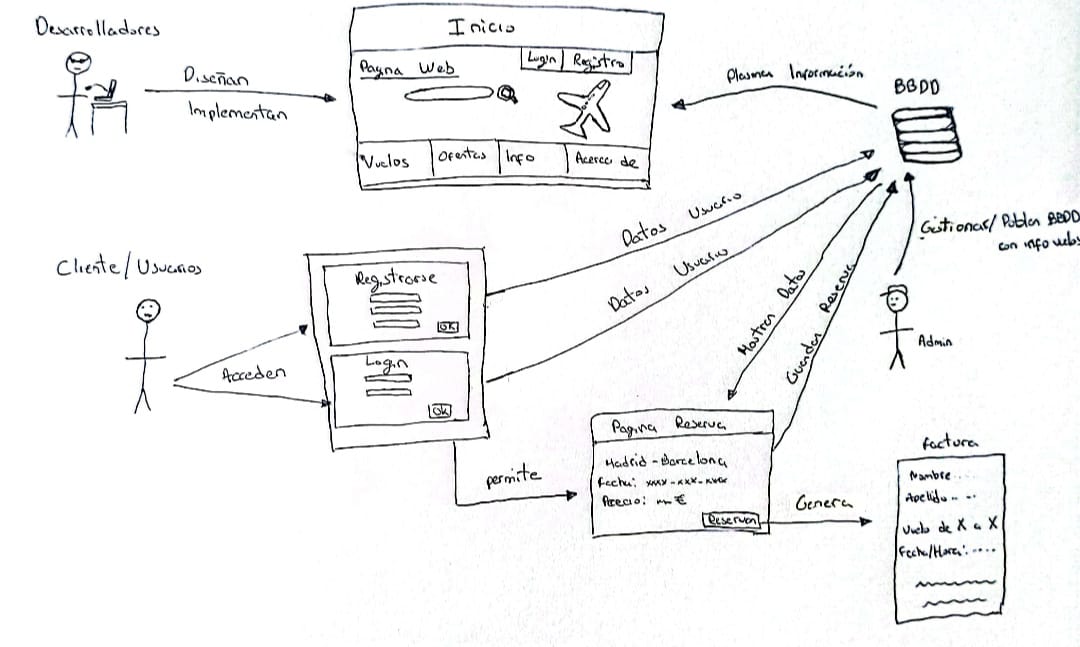 Desarrolladores
Diseñan
Implementan
Inicio
Pagina Web
Login
Registro
Vuelos
Ofertas
Info
Acerca de
Plasmar Información
BBDD
Gestionar/Poblar BBDD
con info webs
Admin
Cliente/Usuarios
Acceden
Registrarse
OK
Login
OK
Datos Usuario
Datos Usuario
Mostrar Datos
Guardar Reserva
permite
Pagina Reserva
Madrid-Barcelona
Fecha: xxx-xxx-xxx
Precio: €
Reservar
Genera
factura
Nombre....
Apellido.. ..
Vuelo de X a X
Fecha/Hora:....